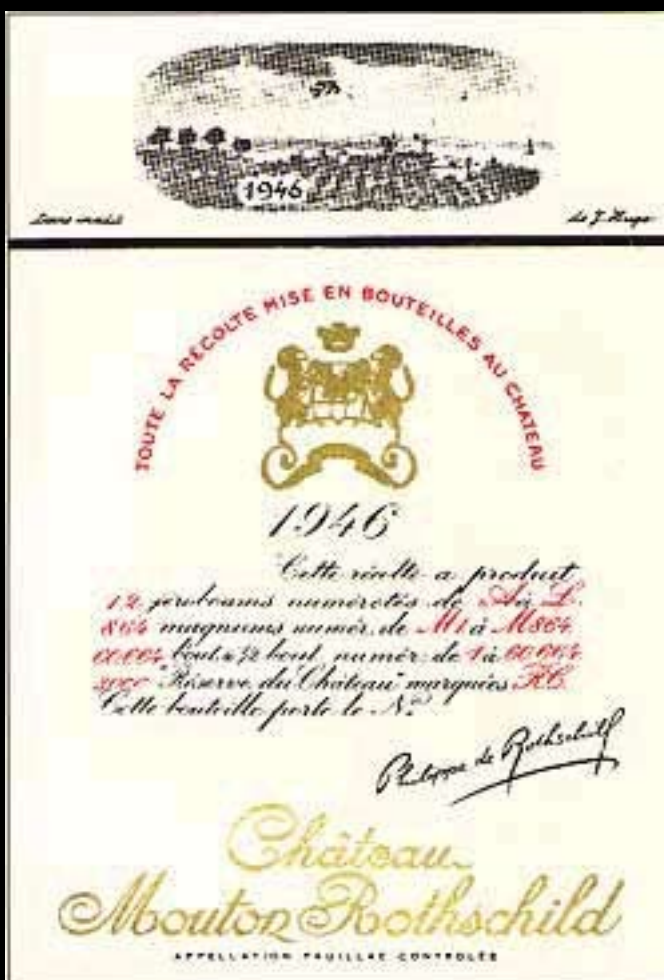 1946
de J. Hugo
TOUTE LA RÉCOLTE MISE EN BOUTEILLES AU CHATEAU
1946
Cette récolte a produit
12 jeroboams numérotés de A à L.
864 magnums numér. de M1 à M864
bout. & ½ bout. numér. de 1 à
2000 "Réserve du Château" marquées RC
Cette bouteille porte le Nº
Philippe de Rothschild
Château
Mouton Rothschild
APPELLATION PAUILLAC CONTROLÉE